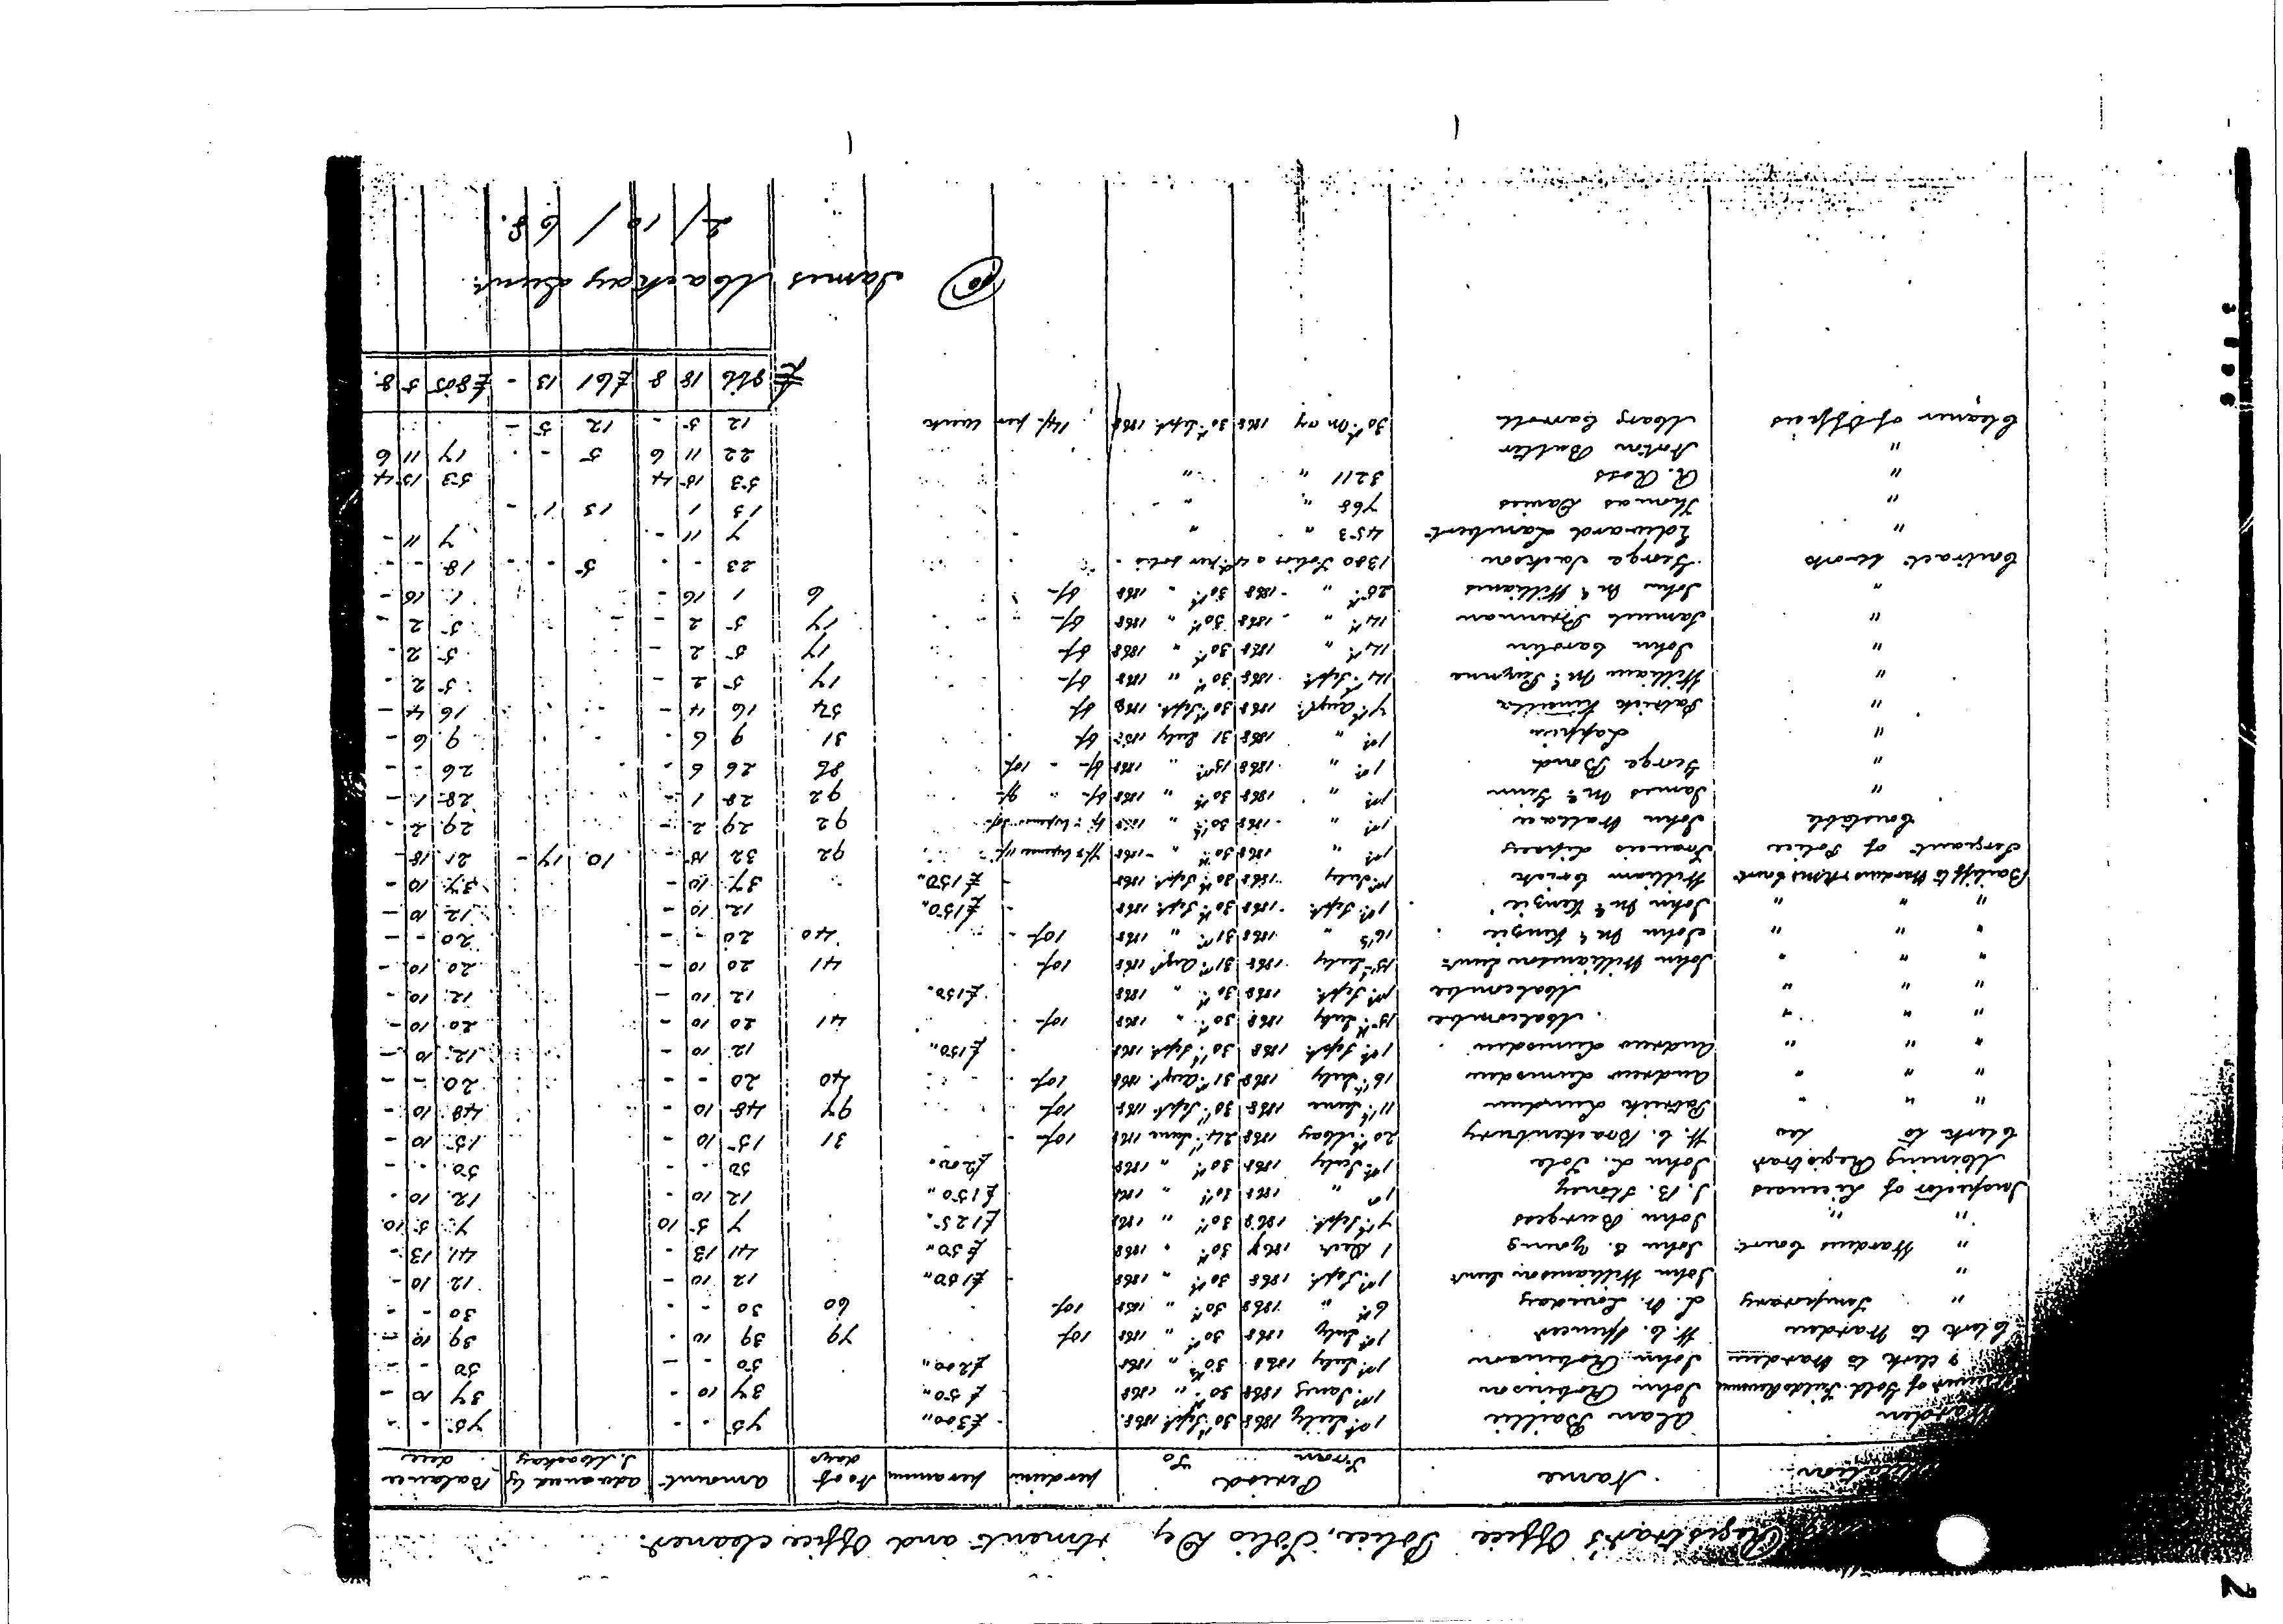 Registrar's Office Police, Folio De tment and Office cleaner.
Name Period From To per diem per annum No of days Amount advanced by J. Mackay Balance due
Alan Baillie 1st July 1868 30th Sept 1868. £300,, 75 - - 75 - -
John Robinson 1st Jany 1868 30th " 1868 £50,, 37 10 - 37 10 -
& clerk to Warden John Robinson 1st July 1868 30th " 1868 £200,, 50 - - 50 - -
Clerk to Warden W. C. Spencer 1st July 1868 30th " 1868 10/- 79 39 10 - 39 10 -
" Temporary L. W. Lindsay 6th " 1868 30th " 1868 10/- 60 30 - - 30 - -
" John Williamson Junr 1st Sept. 1868 30th " 1868 £150,, 12 10 - 12 10 -
" Wardens Court John E. Young 1 Dect 1867 30th " 1868 £50,, 41 13 - 41 13 -
" " John Burgess 7th Sept. 1868 30th " 1868 £125,, 7 5 10 7 5 10
Inspector of Licences J. B. Storey 1st " 1868 30th " 1868 £150,, 12 10 - 12 10 -
Mining Registrar John L. Tole 1st July 1868 30th " 1868 £200,, 50 - - 50 - -
Clerk to do W. C. Brackenbury 20th May 1868 24th June 1868 10/- 31 15 10 - 15 10 -
" " " Patrick Lundon 11th June 1868 30th Sept 1868 10/- 97 48 10 - 48 10 -
" " " Andrew Lumsden 16th July 1868 31st Augt. 1868 10/- 40 20 - - 20 - -
" " " Andrew Lumsden 1st Sept. 1868 30th Sept. 1868 £150,, 12 10 - 12 10 -
" " " Macombe 15th July 1868 30th " 1868 10/- 41 20 10 - 20 10 -
" " " Macombe 1st Sept. 1868 30th " 1868 £150. 12 10 - 12 10 -
" " " John Williamson Junr 15th July 1868 31st Augt 1868 10/- 41 20 10 - 20 10 -
" " " John McKenzie 16th " 1868 31st " 1868 10/- 40 20 - - 20 - -
" " " John McKenzie 1st Sept. 1868 30th Sept. 1868 £150,, 12 10 - 12 10 -
Bailiff to Wardens & RMs Court William Crick 1st July 1868 30th Sept. 1868 £150,, 37 10 - 37 10 -
Sergeant of Police Francis Lipsey 1st " 1868 30th " 1868 92 32 15 - 10 17 - 21 18 -
Constable John Wallace 1st " 1868 30th " 1868 92 29 2 - 29 2 -
" James McGinn 1st " 1868 30th " 1868 6/- " 9/- 92 28 1 - 28 1 -
" George Bond 1st " 1868 15th " 1868 6/- - 10/- 86 26 6 - 26 - -
" Lappin 1st " 1868 31 July 1868 6/- 31 9 6 - 9 6 -
" Patrick Kinsella 7th Augt. 1868 30th Sept. 1868 6/- 54 16 4 - 16 4 -
" William McGuynne 14th Sept. 1868 30th " 1868 6/- 17 5 2 - 5 2 -
" John Carolin 14th " 1868 30th " 1868 6/- 17 5 2 - 5 2 -
" Samuel Brennan 14th " 1868 30th " 1868 6/- 17 5 2 - 5 2 -
" John McWilliams 25th " 1868 30th " 1868 6/- 6 1 16 - 1 16 -
Contract Work George Jackson 1380 Folios @ 4d per folio 23 - - 5 - - 18 - -
" Edward Lambert 453 " " 7 11 - 7 11 -
" Thomas Davies 768 " " 13 1 13 1 -
" R. Ross 3211 " " 53 15 4 53 15 4
" Butler 22 11 6 5 - - 17 11 6
Cleaner of Offices Mary Carroll 30th May 1868 30th Sept. 1868 14/- per week 12 5 - 12 5 -
£ 966 18 8 £61 13 - £805 5 8.
James Mackay Junr.
2/10/68.
2